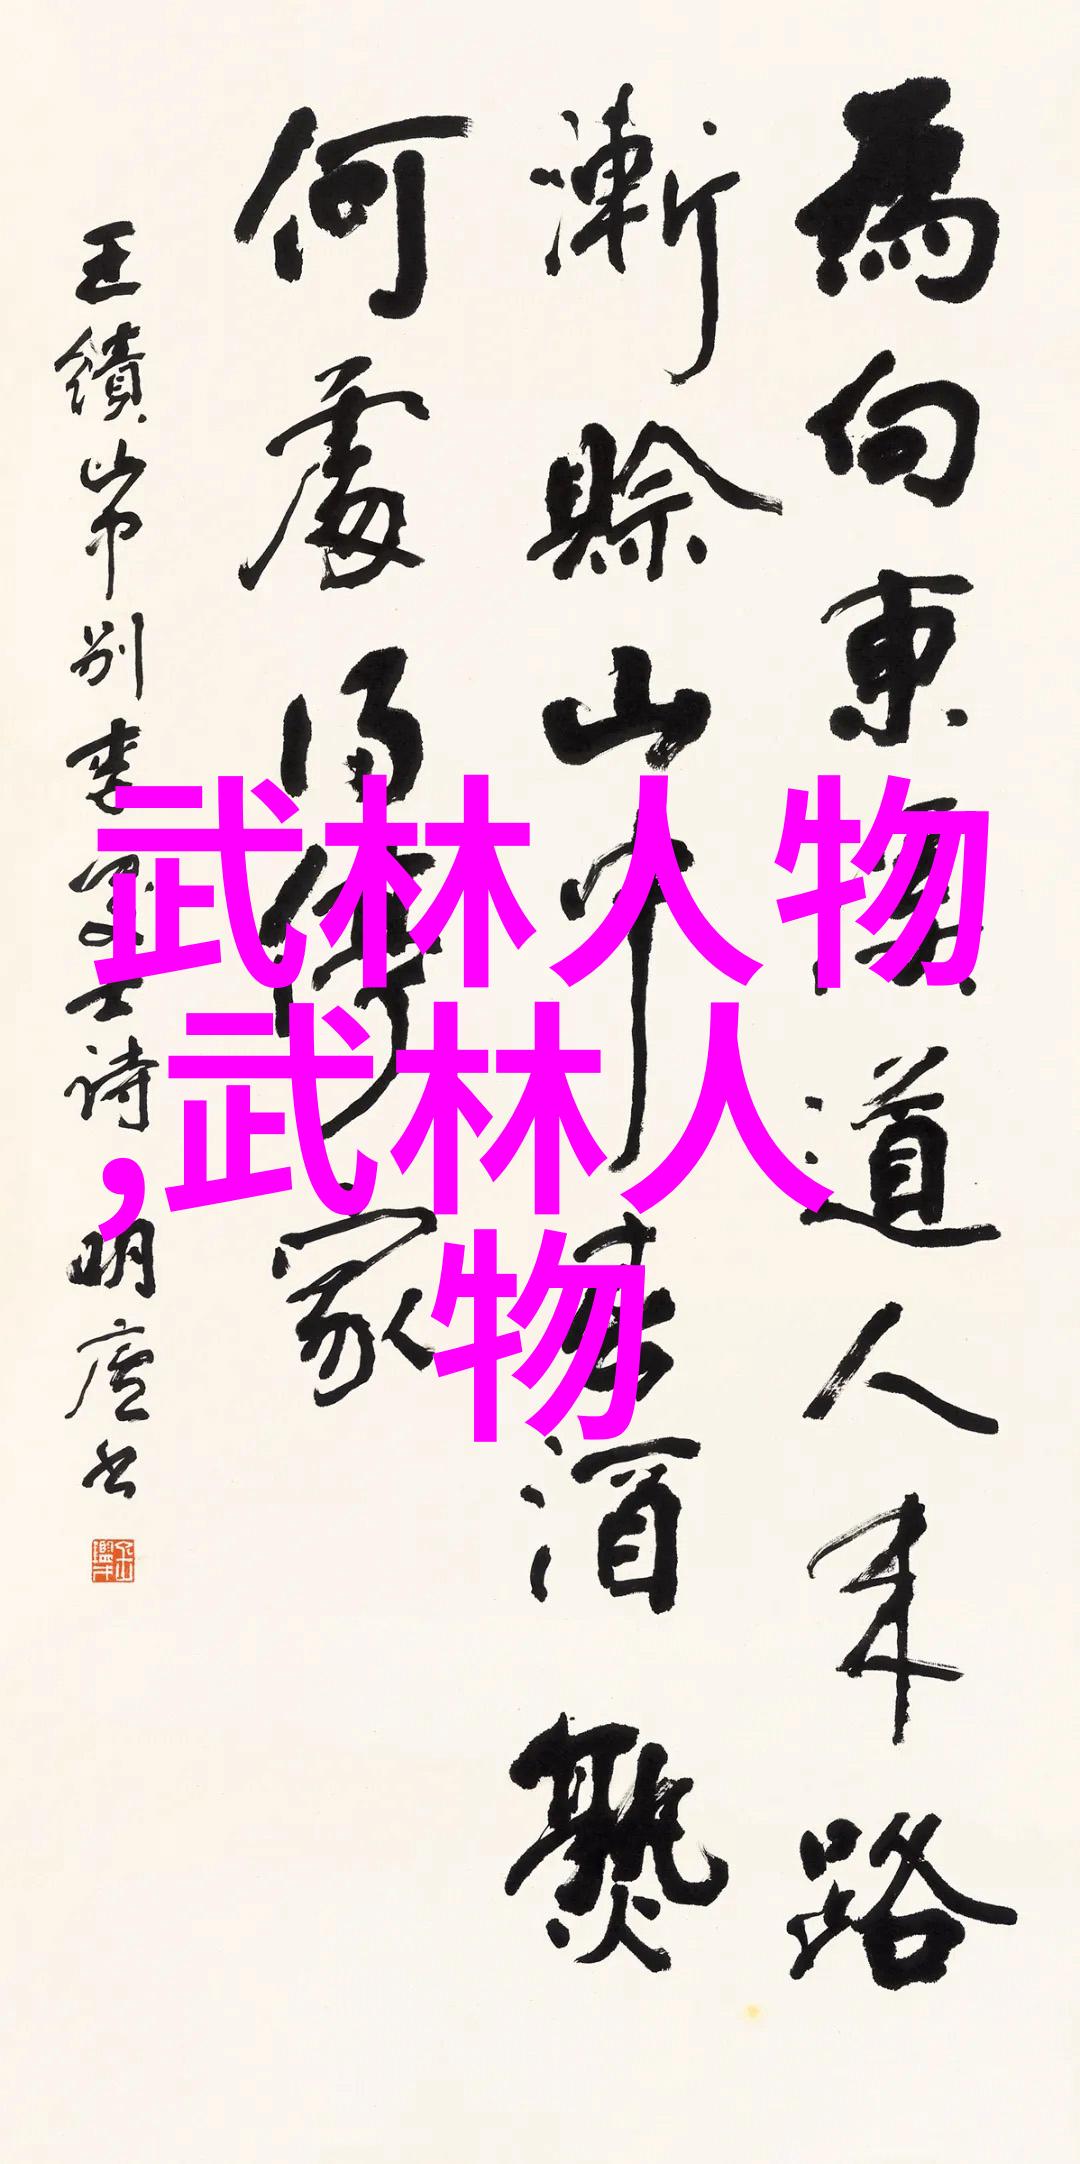 為向東溪道人來路
漸賒山中春酒熟
何處得停家
王績山中別李處士詩 明廬書
武林人物
,武林人
物